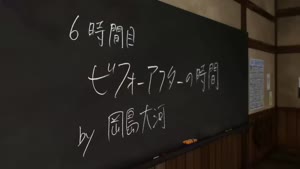 6時間目
ビフォーアフターの時間
by 岡島大河